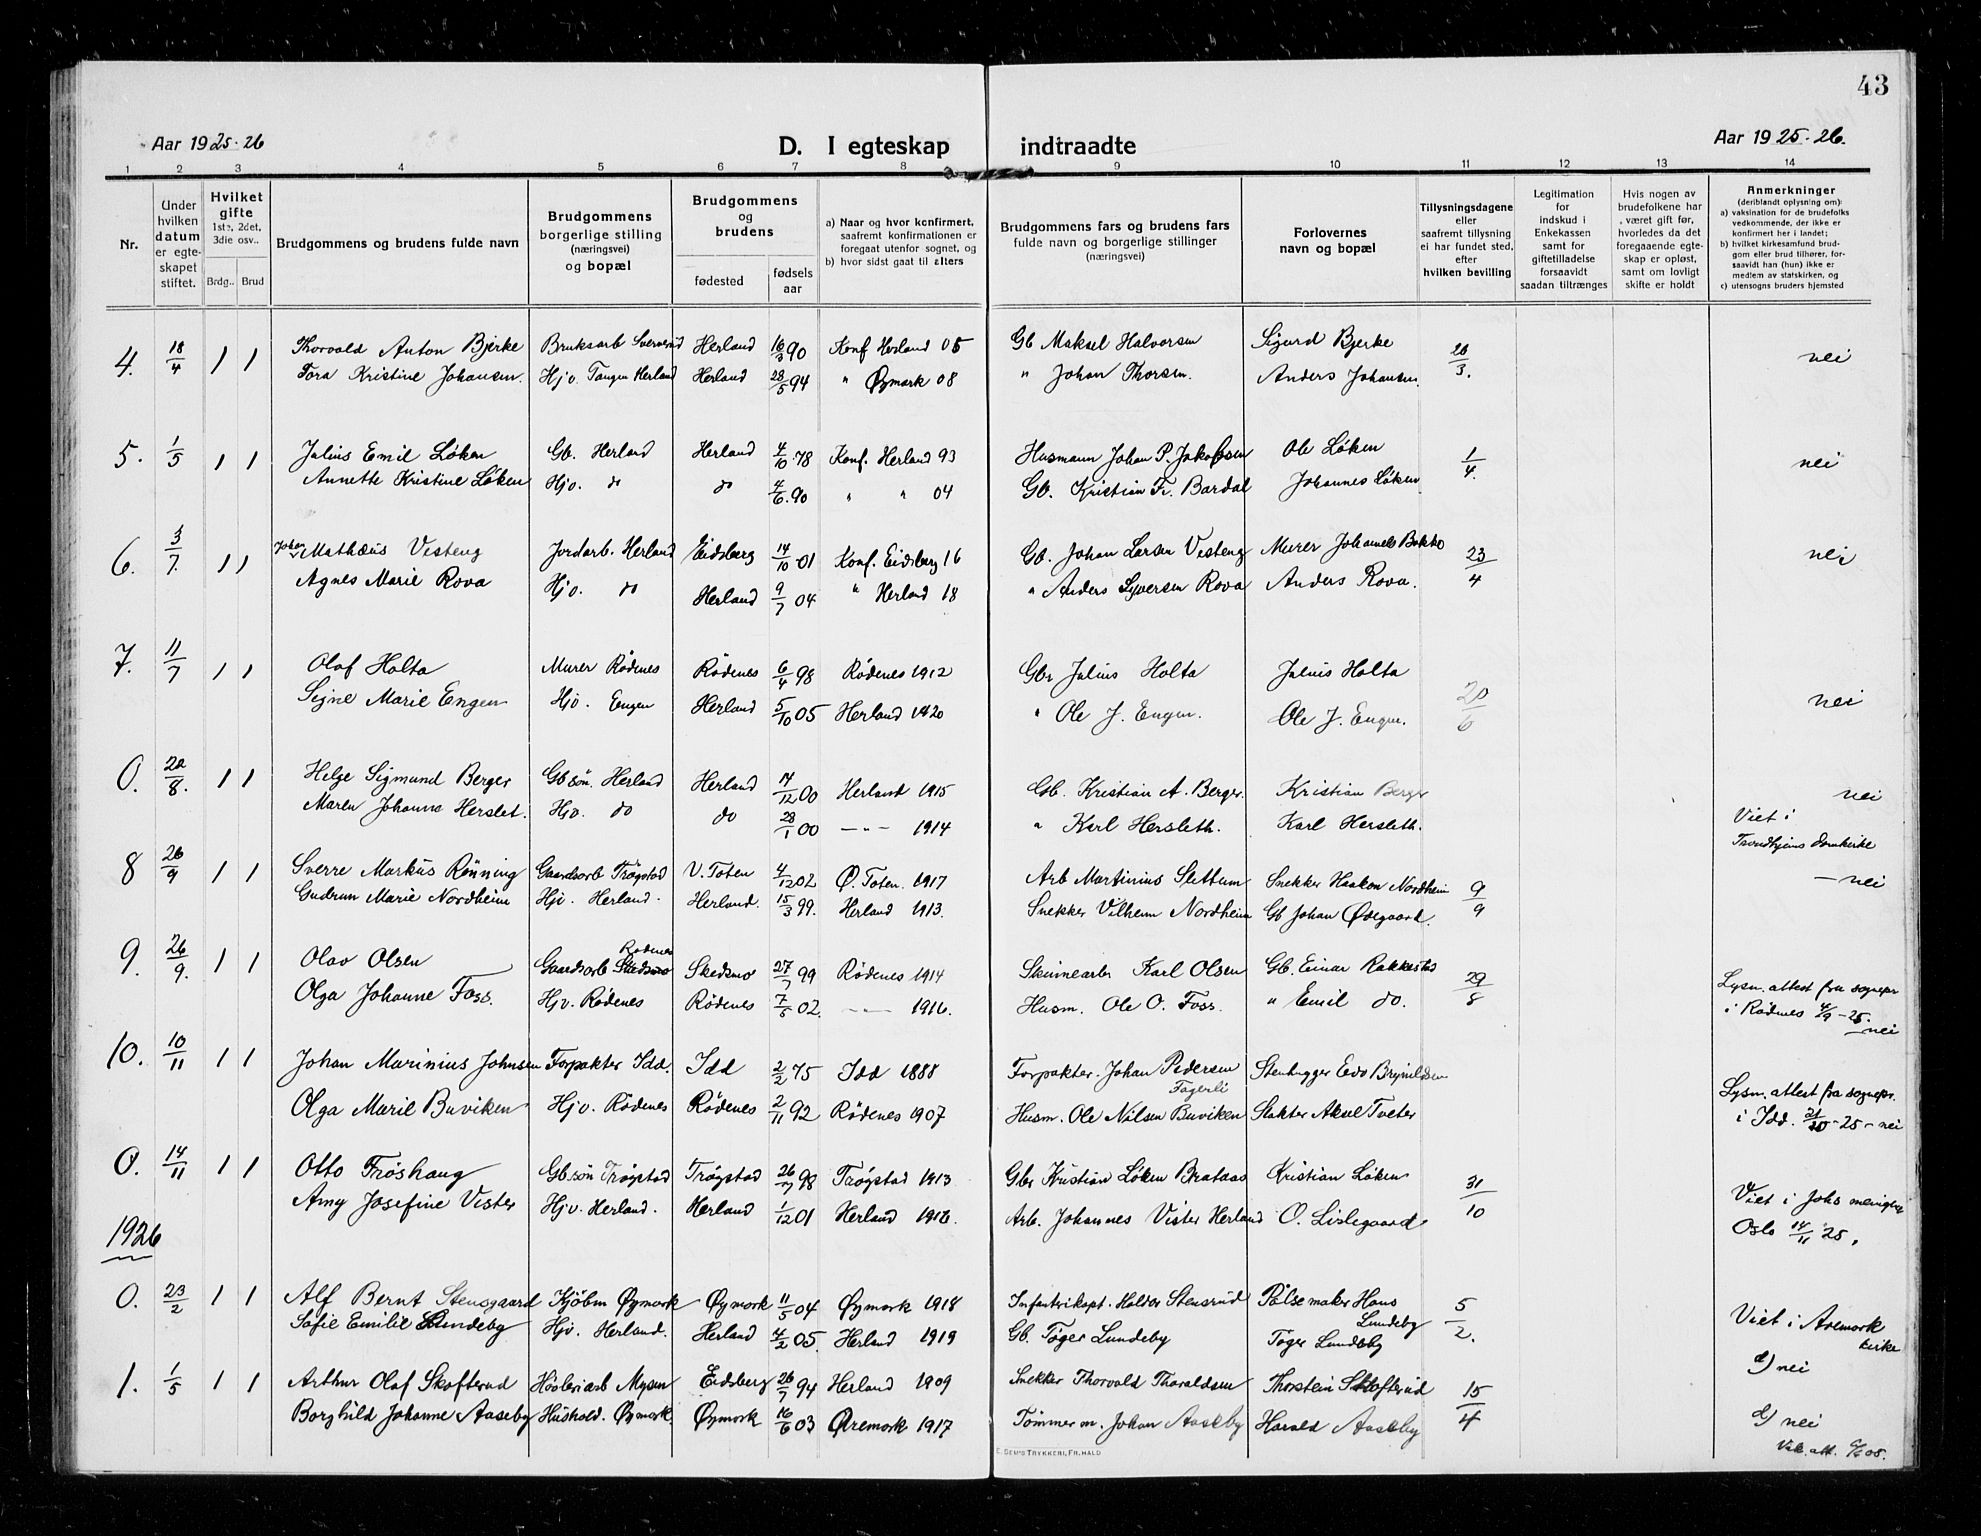 43
Aar 1925-26
D. I egteskap indtraadte
Aar 1925-26.
1 2 3 4 5 6 7 8 9 10 11 12 13 14
Nr.
Under hvilken datum er egteskapet stiftet.
Hvilket gifte 1ste, 2det, 3die osv..
Brdg.. Brud
Brudgommens og brudens fulde navn
Brudgommens borgerlige stilling (næringsvei) og bopæl
Brudgommens og brudens
fødested
fødsels aar
a) Naar og hvor konfirmert, saafremt konfirmationen er foregaat utenfor sognet, og
b) hvor sidst gaat til alters
Brudgommens fars og brudens fars fulde navn og borgerlige stillinger (næringsvei)
Forlovernes navn og bopæl
Tillysningsdagene eller saafremt tillysning ei har fundet sted, efter hvilken bevilling
Legitimation for indskud i Enkekassen samt for giftetilladelse forsaavidt saadan tiltrænges
Hvis nogen av brudefolkene har været gift før, hvorledes da det foregaaende egteskap er opløst, samt om lovligt skifte er holdt
Anmerkninger (deriblandt oplysning om):
a) vaksination for de brudefolks vedkommende, der ikke er konfirmert her i landet;
b) hvilket kirkesamfund brudgom eller brud tilhører, forsaavidt han (hun) ikke er medlem av statskirken, og
c) utensogns bruders hjemsted
4. 18/4 1 1 Thorvald Anton Bjerke Bruksarb Herland 16/3 90 Konf Herland 05 Gb Maksel Halvorsen Sigurd Bjerke 26/3. nei
Tora Kristine Johansen. Hjv. Tangen Herland Herland 28/5 94 " Øymark 08 " Johan Thorsen. Anders Johansen.
5. 1/5 1 1 Julius Emil Løken Gb. Herland Herland 4/10 78 Konf. Herland 93 Husmann Johan P. Jakobsen Ole Løken 1/4. nei
Annette Kristine Løken Hjv. do do 4/6. 90 " " 04 Gb. Kristian Fr. Bardal Johannes Løken
6. 3/7. 1 1 Johan Mathæus Vesteng Jordarb. Herland Eidsberg 14/10 01 Konf. Eidsberg 16 Gb. Johan Larsen Vesteng Murer Johannes Bakke 23/4 nei
Agnes Marie Rova Hjv. do Herland 9/7 04 " Herland 18 " Anders Syversen Rova Anders Rova.
7. 11/7 1 1 Olaf Holta Murer Rødenes Rødenes 6/4 98 Rødenes 1912 Gbr Julius Holta Julius Holta 20/6 nei
Signe Marie Engen Hjv. Engen Herland 5/10 05 Herland 1920 " Ole J. Engen. Ole J. Engen.
0. 22/8. 1 1 Helge Sigmund Berger Gb søn. Herland Herland 17/12 00 Herland 1915 Gb. Kristian A. Berger. Kristian Berger nei
Maren Johanne Herslet. Hjv. do do 28/1 00 -"- 1914 " Karl Hersleth. Karl Hersleth. Viet i
Trondhjems domkirke
8 26/9 1 1 Sverre Markus Rønning Gaardsarb Trøgstad V. Toten 4/12 02 Ø. Toten. 1917 Arb Martinius Slettum Snekker Haakon Nordheim 9/9 - nei
Gudrun Marie Nordheim Hjv. Herland. Herland. 15/3 99. Herland 1913. Snekker Vilhelm Nordheim Gb Johan Ødegaard.
9. 26/9. 1 1 Olav Olsen Gaardsarb Rødenes Skedsmo 27/7 99 Rødenes 1914 Karl Olsen Gb. Einar Rakkestad 29/8 Lysn. attest fra sognepr
Olga Johanne Foss. Hjv. Rødenes Rødenes 7/5 02. -"- 1916. Husm. Ole O. Foss. " Emil do. i Rødenes 4/9-25.
- nei
10. 10/11 1 1 Johan Marinius Johnsen Forpakter Idd. Idd 2/2 75 Idd 1888 Forpakter. Johan Pedersen Stenhugger Brynildsen
Fagerli Lysn. attest fra sognepr.
Olga Marie Buviken Hjv. Rødenes Rødenes 2/11 92 Rødenes 1907 Husm. Ole Nilsen Buviken Slakter Aksel Tveter i Idd. 21/10-25 - nei
0. 14/11 1 1 Otto Frøshaug Gb søn Trøgstad Trøgstad 26/7 98 Trøgstad 1913 Gbr Kristian Løken Brataas Kristian Løken 31/10 Viet i Johs menighet
Amy Josefine Vister Hjv. Herland. Herland 1/12 01 Herland 1916. Arb. Johannes Vister Herland O. Lislegaard Oslo 14/11 25.
1926
0. 23/2 1 1 Alf Bernt Stensgaard Kjøbm Øymark Øymark 11/5 04 Øymark 1918 Infanterikapt. Halder Stensrud Pølsemaker Hans Lundeby 5/2. Viet i Aremark kirke
Sofie Emilie Lundeby Hjv. Herland. Herland 4/2 05. Herland 1919 Gb. Tøger Lundeby Tøger Lundeby
d) nei
1. 1/5 1 1 Arthur Olaf Skofterud Høvleriarb Mysen Eidsberg 26/7 94 Herland 1909 Snekker Thorvald Thoraldsen Thorstein Skofterud 15/4
Borghild Johanne Aaseby Hushold. Øymark. Øymark 16/6 03 Øremark 1917 Tømmerm. Johan Aaseby Harald Aaseby d) nei
Vak. att.
E. SEM'S TRYKKERI, FR.HALD